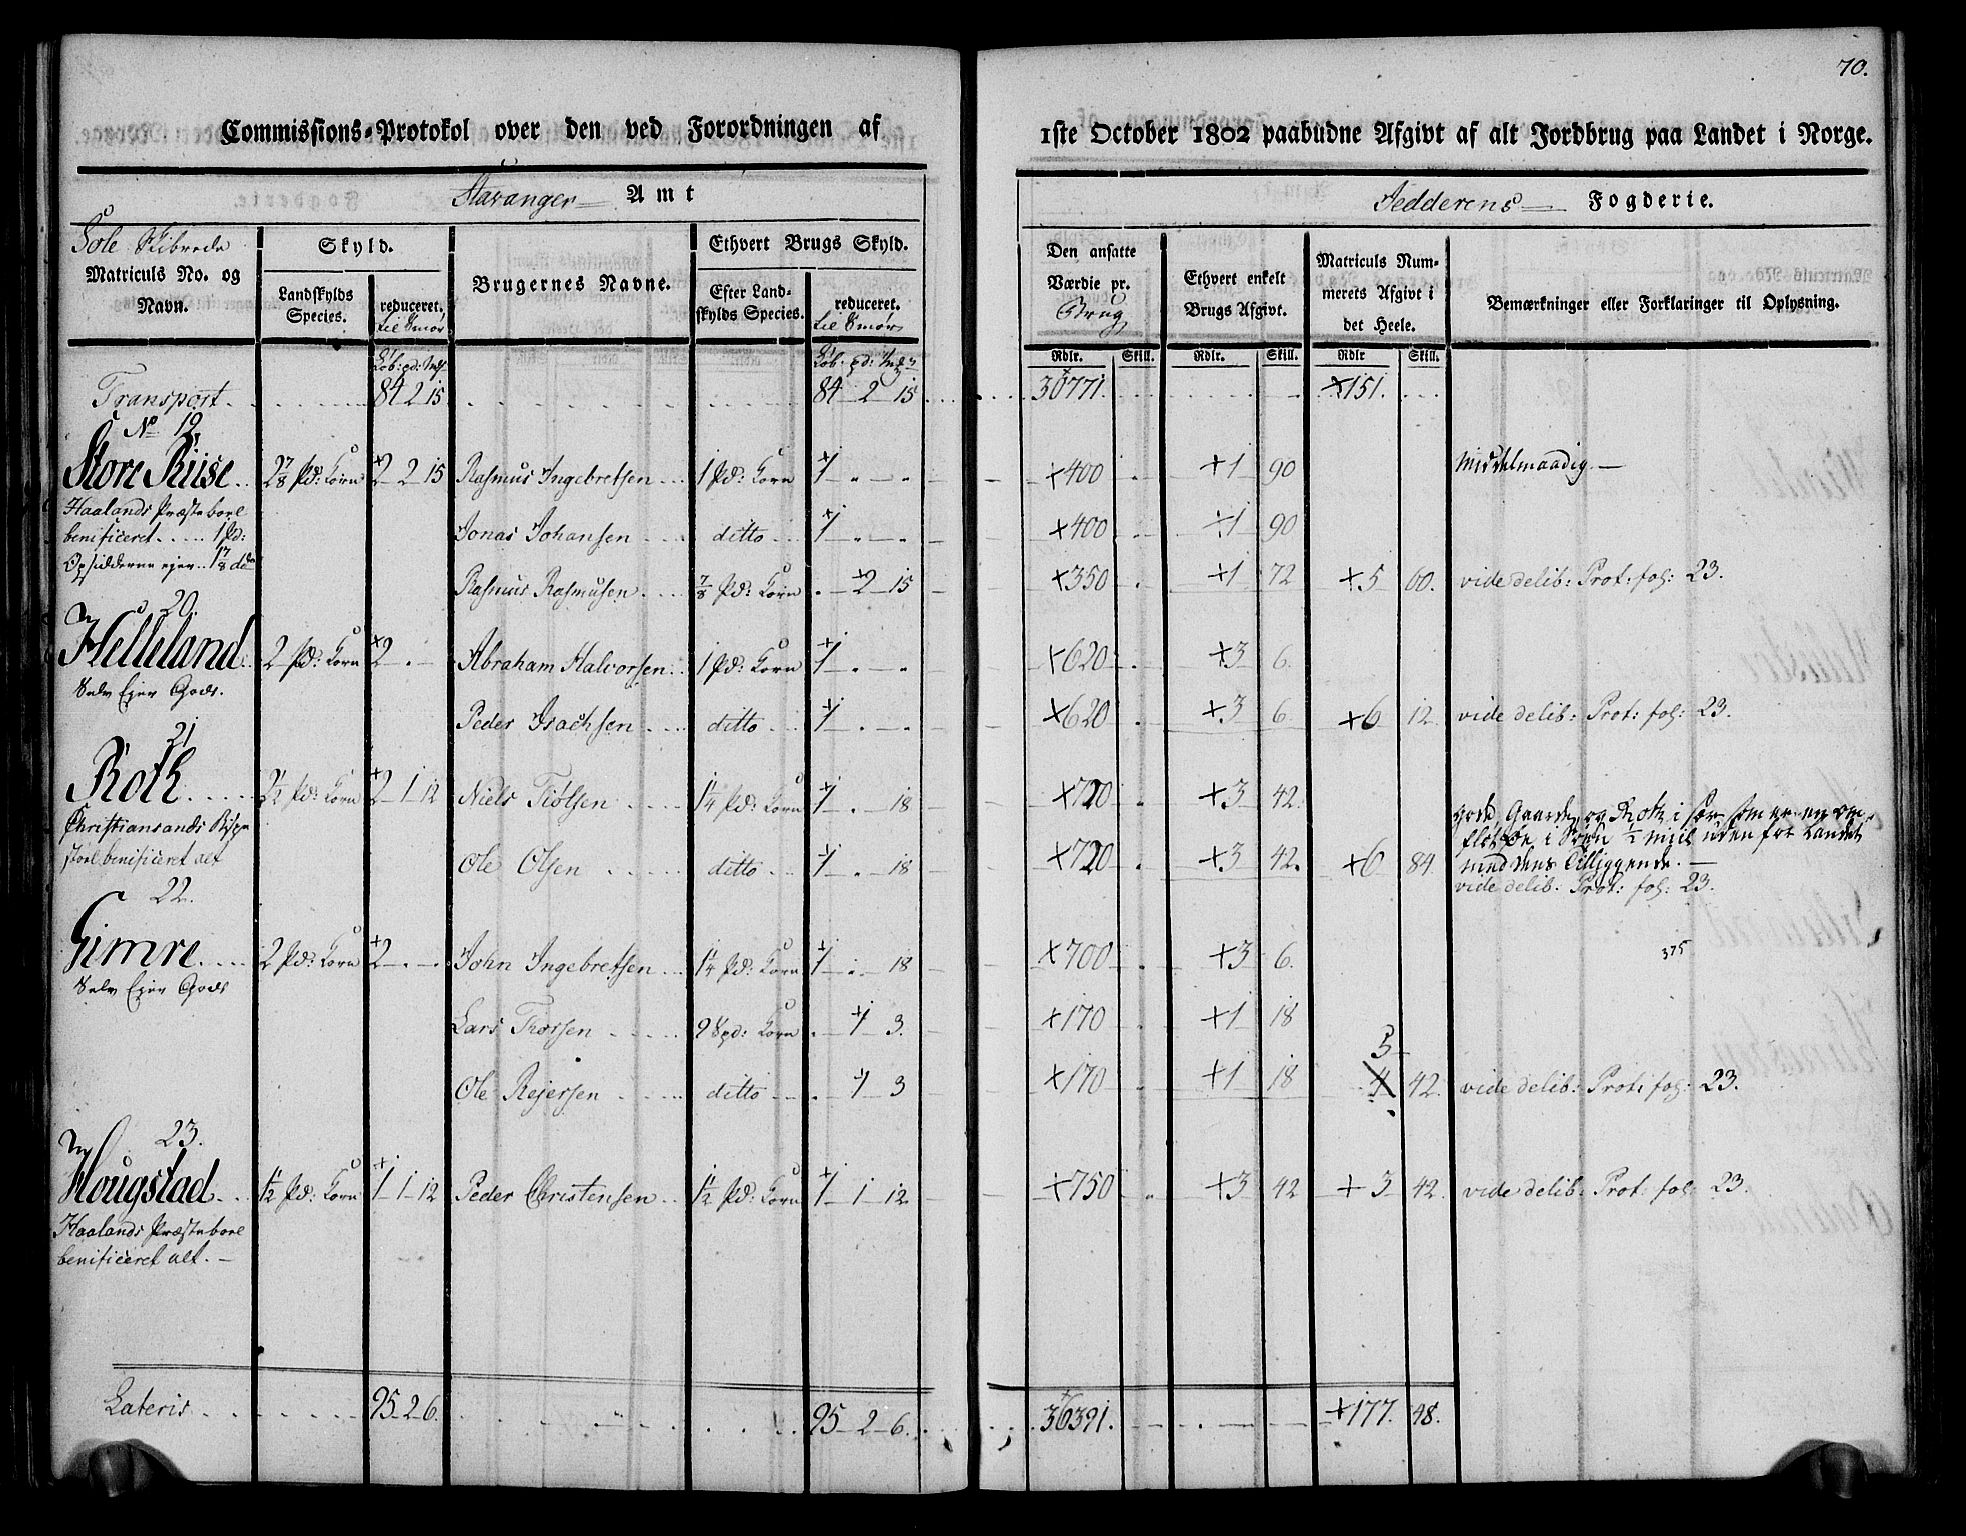 70.
Commissions-Protokol over den ved Forordningen af 1ste October 1802 paabudne Afgivt af alt Jordbrug paa Landet i Norge.
Stavanger Amt Jedderens Fogderie.
Sole Skibrede
Matriculs No. og Navn.
Skyld.
Landskylds Species.
reduceret. til Smør
Brugernes Navne.
Ethvert Brugs Skyld.
Efter Landskylds Species.
reduceret. til Smør
Den ansatte Værdie pr. Brug
Ethvert enkelt Brugs Afgivt.
Matriculs Nummerets Afgivt i det Heele.
Bemærkninger eller Forklaringer til Oplysning.
Rdlr. Skill. Rdlr. Skill. Rdlr Skill.
Transport . . . 84 2 15 . . . 84 2 15 . . . 30771. . . . +151. . . .
No 19.
Store Riise . . 2 7/8 Pd: Korn +2 2 15 Rasmus Ingebretsen . . 1 Pd: Korn +1 . . +400 . +1 90 Middelmaadig. —
Haalands Præsteboel
benificeret . . . . 1 Pd: Jonas Johansen . . . ditto . . +1 . . +400 . +1 90
Opsidderne ejer . . 1 7/8 do Rasmus Rasmusen . . . 7/8 Pd: Korn . +2 15 +350 . +1 72 +5 60. vide delib: Prot: fol: 23.
20.
Helleland . . 2 Pd: Korn +2 . — Abraham Halvorsen . . 1 Pd: Korn +1 . . +620 . +3 6.
Selv Ejer Gods. Peder Isachsen . . . ditto . . +1 . . +620 . +3 6. +6 12. vide delib: Prot: fol: 23.
21
Roth . . . . 2 1/2 Pd: Korn +2 1 12 Niels Tiølsen . . . . 1 1/4 Pd: Korn +1 . 18 +720 . +3 42.
Christiansands Bispe
stoel benificeret alt Ole Olsen . . . . ditto . . +1 . 18 +720 . +3 42. +6 84
gode Gaarde, og Roth i sær som er en
i 1/2 miil uden for Landet
med dens Tilliggende. —
vide delib: Prot: fol: 23.
22.
Gimre . . . . 2 Pd: Korn +2 . . John Ingebretsen . . 1 1/4 Pd: Korn +1 . 18 +700 . +3 6. 375
Selv Ejer Gods
Lars Thorsen . . . . 9 Spd: Korn . +1 3. +170 . +1 18
5
Ole Rejersen . . . . ditto . . . +1 3 +170 . +1 18 4 42. vide delib: Prot: fol: 23.
23.
Hougstad . . 1 1/2 Pd: Korn +1 1 12 Peder Christensen . . 1 1/2 Pd: Korn +1 1 12. +750 . +3 42 +3 42. vide delib: Prot: fol: 23.
Haalands Præsteboel
benificeret alt. —
Lateris . . . 95 2 6. . . . 95 2 6. . . . 36391. . . . +177. 48.